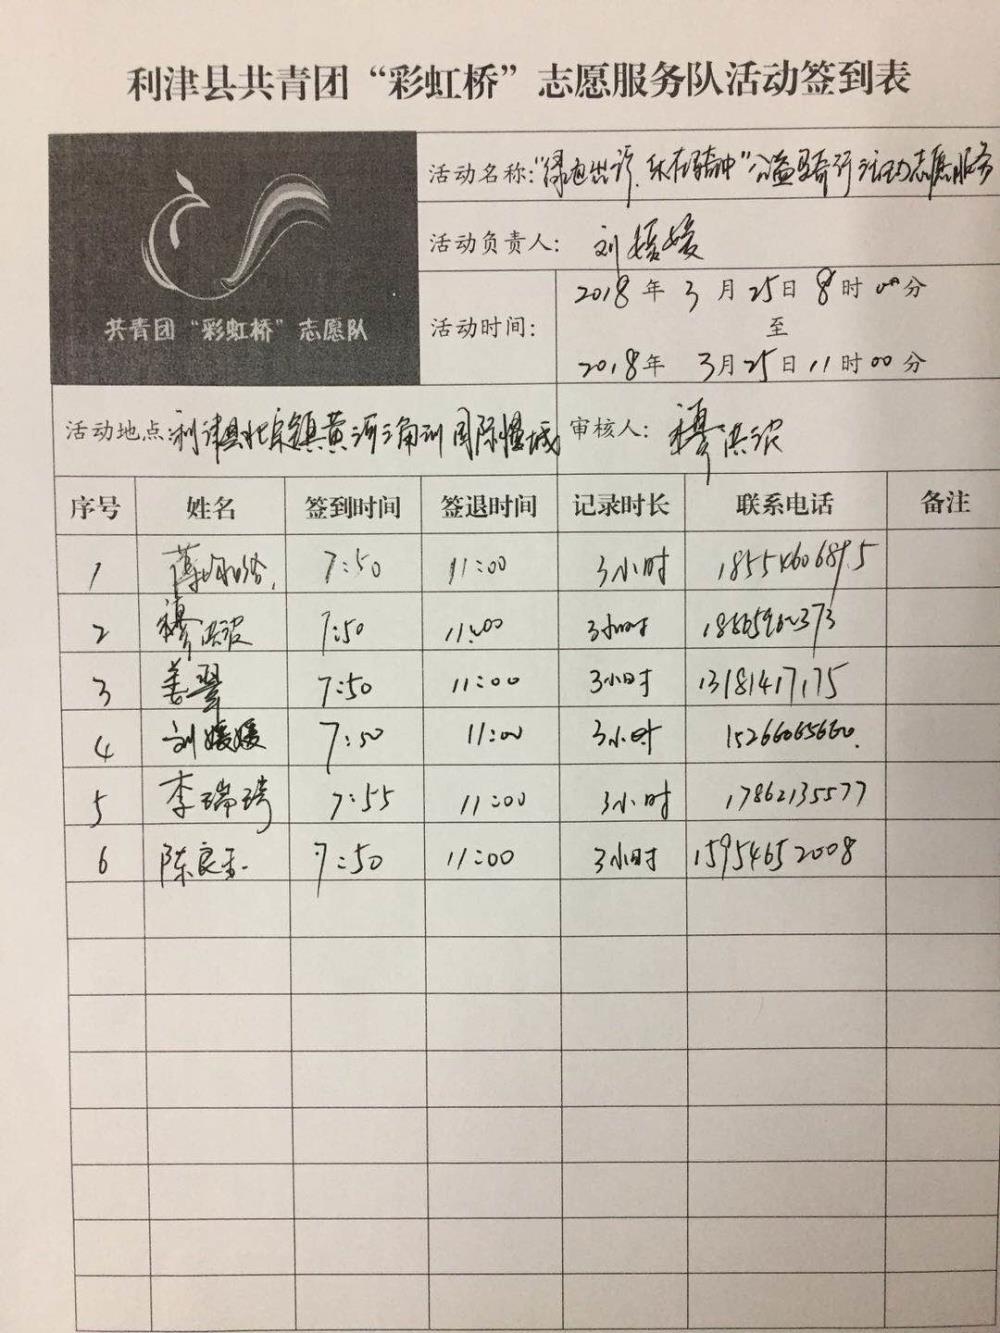 利津县共青团“彩虹桥”志愿服务队活动签到表
共青团“彩虹桥”志愿队
活动名称：“绿色出行，乐在骑中”公益骑行活动志愿服务
活动负责人： 刘媛媛
活动时间： 2018年 3月25日8时00分
至
2018年 3月25日11时00分
活动地点：利津县北宋镇黄河三角洲国际慢城 审核人：穆洪波
序号 姓名 签到时间 签退时间 记录时长 联系电话 备注
1 7:50 11:00 3小时
2 穆洪波 7:50 11:00 3小时
3 姜翠 7:50 11:00 3小时 13181417175
4 刘媛媛 7:50 11:00 3小时 15266065660
5 李瑞琦 7:55 11:00 3小时 17862135577
6 陈良玉 7:50 11:00 3小时 15954652008